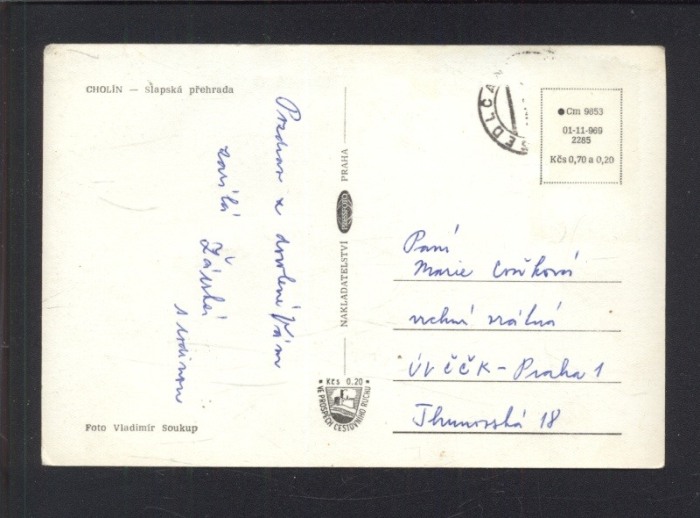 CHOLÍN — Slapská přehrada
Pozdrav z dovolené Vám
zasílá
s rodinou
Foto Vladimír Soukup
NAKLADATELSTVÍ PRESSFOTO PRAHA
Kčs 0,20
VE PROSPĚCH CESTOVNÍHO RUCHU
EDLČA
Cm 9853
01-11-969
2285
Kčs 0,70 a 0,20
Paní
Marie
vrchní
ÚV ČČK - Praha 1
Thunovská 18